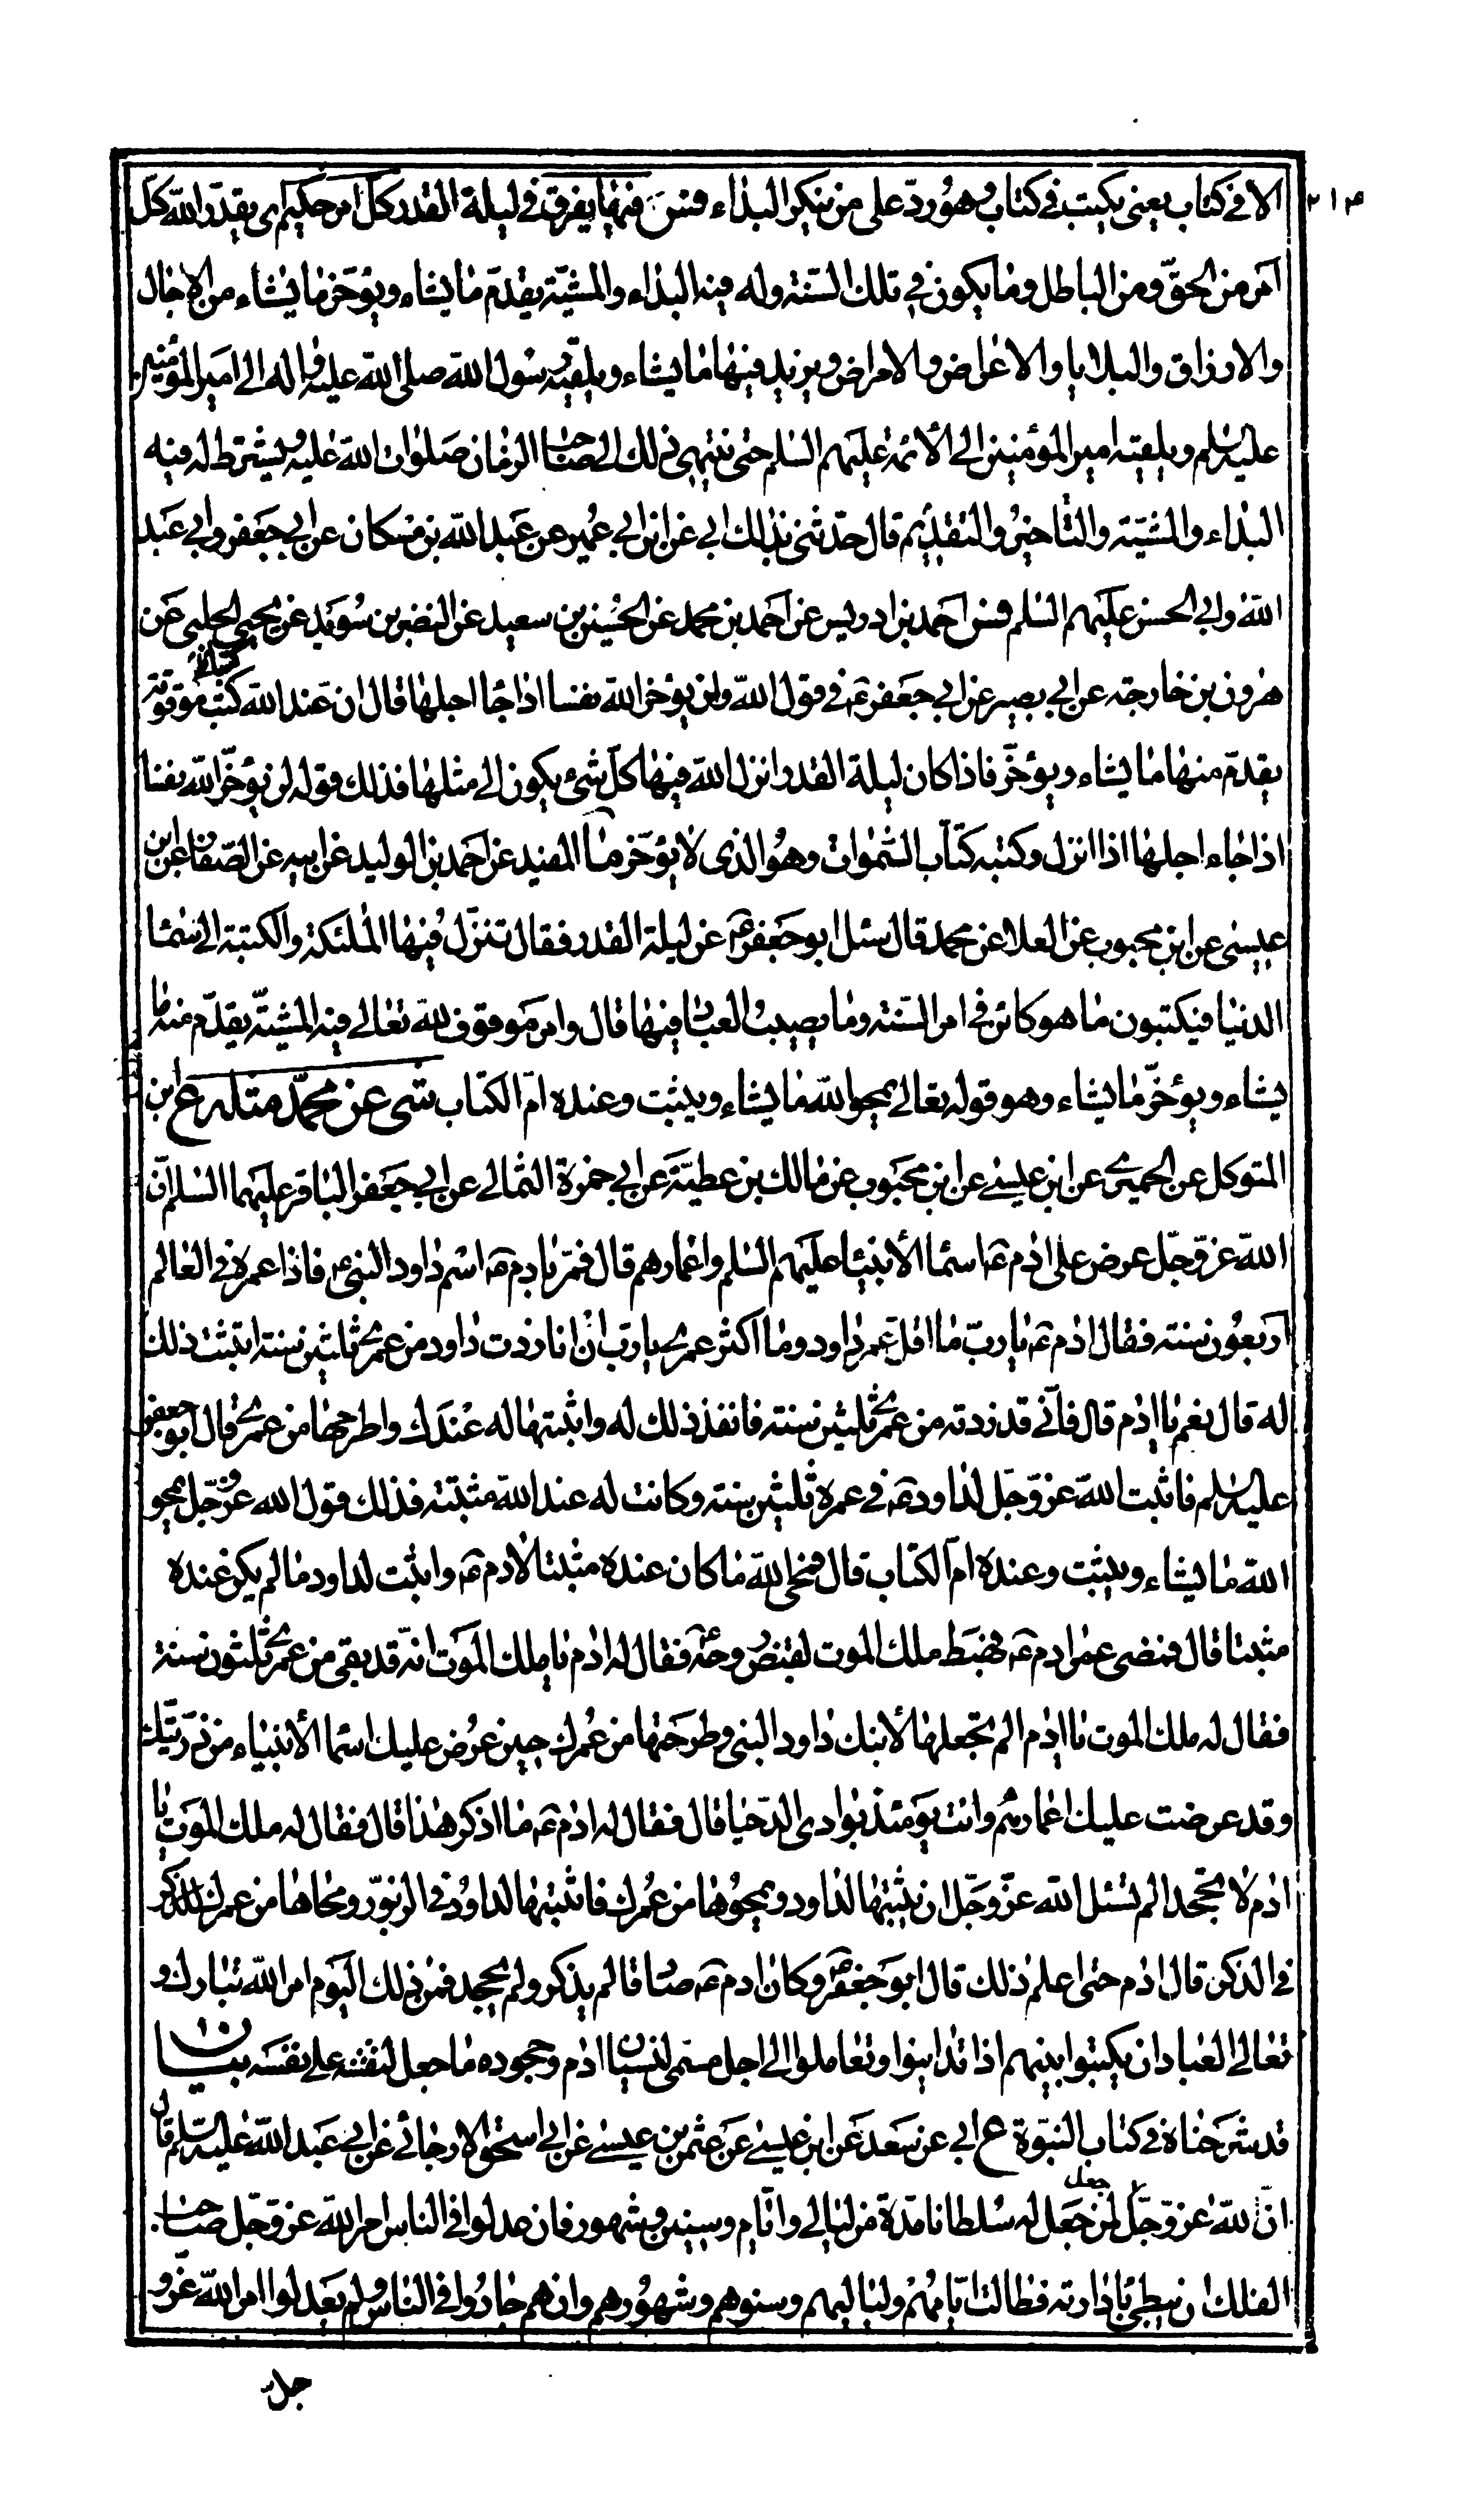 ٢١٣
الا في كتاب يعني يكتب في كتاب وهو ردّ على من ينكر البداء فس فيها يفرق في ليلة القدر كل امر حكيم اى يقدّر الله كلّ
امر من الحقّ ومن الباطل وما يكون في تلك السّنة وله فيه البداء والمشيّة يقدّم ما يشاء ويؤخّر ما يشاء من الاجال
والارزاق والبلايا والاعراض والامراض ويزيد فيها ما يشاء ويلقيه رسول الله صلى الله عليه واله الى امير المؤمنين
عليه السلم ويلقيه امير المؤمنين الى الأئمة عليهم السّلم حتى ينتهى ذلك الى صاحب الزمان صلوات الله عليه ويشترط له فيه
البداء والمشيّة والتأخير والتقديم قال حدّثنى بذلك ابي عن ابن ابي عمير عن عبد الله بن مسكان عن ابي جعفر وابي عبد
الله وابي الحسن عليهم السّلم فس احمد بن ادريس عن احمد بن محمد عن الحسين بن سعيد عن النضر بن سويد عن يحيى الحلبي عن
هرون بن خارجه عن ابي بصير عن ابي جعفر ع في قول الله ولن يؤخر الله نفسا اذا جا اجلها قال ان عند الله كتب موقوتة
يقدّم منها ما يشاء ويؤخّر فاذا كان ليلة القدر انزل الله فيها كلّ شئ يكون الى مثلها فذلك قوله لن يؤخّر الله نفسا
اذا جاء اجلها اذا انزل وكتبه كتّاب السّموات وهو الذى لا يؤخّر ما المفيد عن احمد بن الوليد عن ابيه عن الصّفار عن ابن
عيسى عن ابن محبوب عن العلا عن محمد قال سئل ابو جعفر ع عن ليلة القدر فقال تنزّل فيها الملئكة والكتبة الى سما
الدنيا فيكتبون ما هو كائن في امر السّنة وما يصيب العباد فيها قال وامر موقوف لله تعالى فيه المشيّة يقدّم منه ما
يشاء ويؤخّر ما يشاء وهو قوله تعالى يمحو الله ما يشاء ويثبت وعنده امّ الكتاب شى عن محمّد مثله ع ابن
المتوكل عن الحميرى عن ابن عيسى عن ابن محبوب عن مالك بن عطيّة عن ابي حمزة الثمالى عن ابي جعفر الباقر عليهما السّلم انّ
الله عزّ وجلّ عرض على ادم ع اسما الأنبيا عليهم السّلم واعمارهم قال فمرّ بادم ع اسم داود النبى ع فاذا عمره في العالم
اربعون سنة فقال ادم ع يا ربّ ما اقلّ عمر داود وما اكثر عمرى يا ربّ ان انا زدت داود من عمرى ثلثين سنة اتثبت ذلك
له قال نعم يا ادم قال فانّي قد زدته من عمرى ثلثين سنة فانفذ ذلك له واثبتها له عندك واطرحها من عمرى قال ابو جعفر
عليه السلم فاثبت الله عزّ وجلّ لداود ع في عمره ثلثين سنة وكانت له عند الله مثبتة فذلك قول الله عزّ وجلّ يمحو
الله ما يشاء ويثبت وعنده امّ الكتاب قال فمحى الله ما كان عنده مثبتا لادم ع واثبت لداود ما لم يكن عنده
مثبتا قال فمضى عمر ادم ع فهبط ملك الموت لقبض روحه فقال له ادم يا ملك الموت انّه قد بقى من عمرى ثلثون سنة
فقال له ملك الموت يا ادم الم تجعلها لأبنك داود النبى وطرحتها من عمرك حين عرض عليك اسما الأنبياء من ذرّيتك
وقد عرضت عليك اعمارهم وانت يومئذ بوادى الدّحيا قال فقال له ادم ع ما اذكر هذا قال فقال له ملك الموت يا
ادم لا تجحد الم تسئل الله عزّ وجلّ ان يثبتها لداود ويمحوها من عمرك فاثبتها لداود في الزبور ومحاها من عمرك
في الذكر قال ادم حتى اعلم ذلك قال ابو جعفر ع وكان ادم ع صادقا لم يذكر ولم يجحد فمن ذلك اليوم امر الله تبارك و
تعالى العباد ان يكتبوا بينهم اذا تداينوا وتعاملوا الى اجل مسمى لنسيان ادم وجحوده ما جعل لنفسه على نفسه بيان
قد شرحناه في كتاب النبوّة ع ابي عن سعد عن ابن عيسى عن عثمن بن عيسى عن ابي اسحق الارجائي عن ابي عبد الله عليه السّلم قال
انّ الله عزّ وجلّ لمن جعل له سلطانا مدّة من ليالي وايّام وسنين وشهور فان عدلوا في الناس امر الله عزّ وجلّ صاحب
الفلك ان يبطئ بادارته فطالت ايّامهم ولياليهم وسنوهم وشهورهم وان هم جاروا في الناس ولم يعدلوا امر الله عزّ و
جلّ